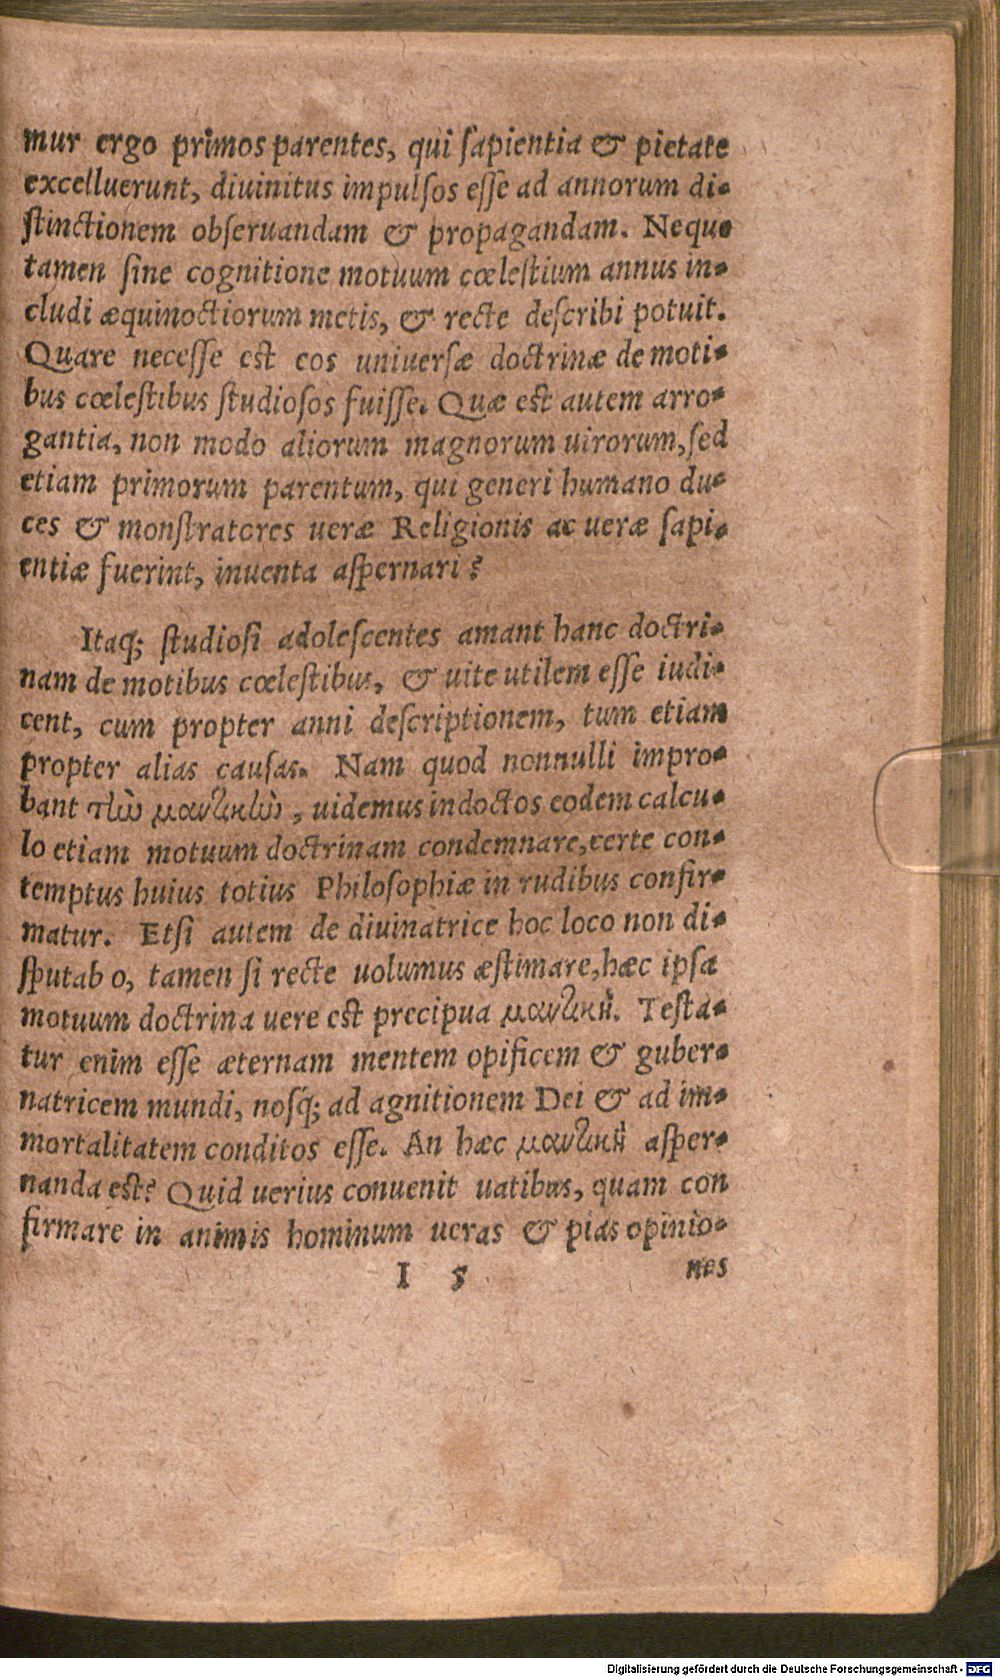 mur ergo primos parentes, qui ſapientia & pietate
excelluerunt, diuinitus impulſos eſſe ad annorum di-
ſtinctionem obſeruandam & propagandam. Neque
tamen ſine cognitione motuum cœleſtium annus in-
cludi æquinoctiorum metis, & recte deſcribi potuit.
Quare neceſſe est eos uniuerſæ doctrinæ de moti-
bus cœleſtibus ſtudioſos fuiſſe. Quæ est autem arro-
gantia, non modo aliorum magnorum uirorum, ſed
etiam primorum parentum, qui generi humano du-
ces & monſtratores ueræ Religionis ac ueræ ſapi-
entiæ fuerint, inuenta aſpernari?
Itaq; ſtudioſi adoleſcentes amant hanc doctri-
nam de motibus cœleſtibus, & uite utilem eſſe iudi-
cent, cum propter anni deſcriptionem, tum etiam
propter alias cauſas. Nam quod nonnulli impro-
bant τὴν μαντικὴν, uidemus indoctos eodem calcu-
lo etiam motuum doctrinam condemnare, certe con-
temptus huius totius Philoſophiæ in rudibus confir-
matur. Etſi autem de diuinatrice hoc loco non di-
ſputab o, tamen ſi recte uolumus æſtimare, hæc ipſa
motuum doctrina uere est precipua μαντικὴ. Teſta-
tur enim eſſe æternam mentem opificem & guber-
natricem mundi, noſq́; ad agnitionem Dei & ad im-
mortalitatem conditos eſſe. An hæc μαντικὴ aſper-
nanda est? Quid uerius conuenit uatibus, quam con
firmare in animis hominum ueras & pias opinio-
I 5 nes
Digitalisierung gefördert durch die Deutsche Forschungsgemeinschaft - DFG